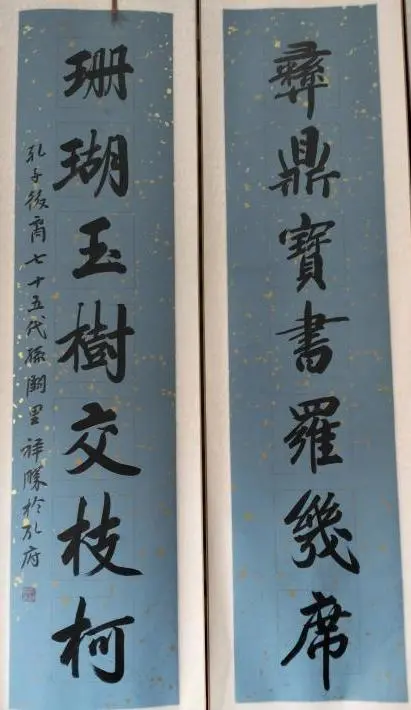 彝鼎寶書羅幾席
珊瑚玉樹交枝柯
孔子後裔七十五代孫闕里祥勝於孔府